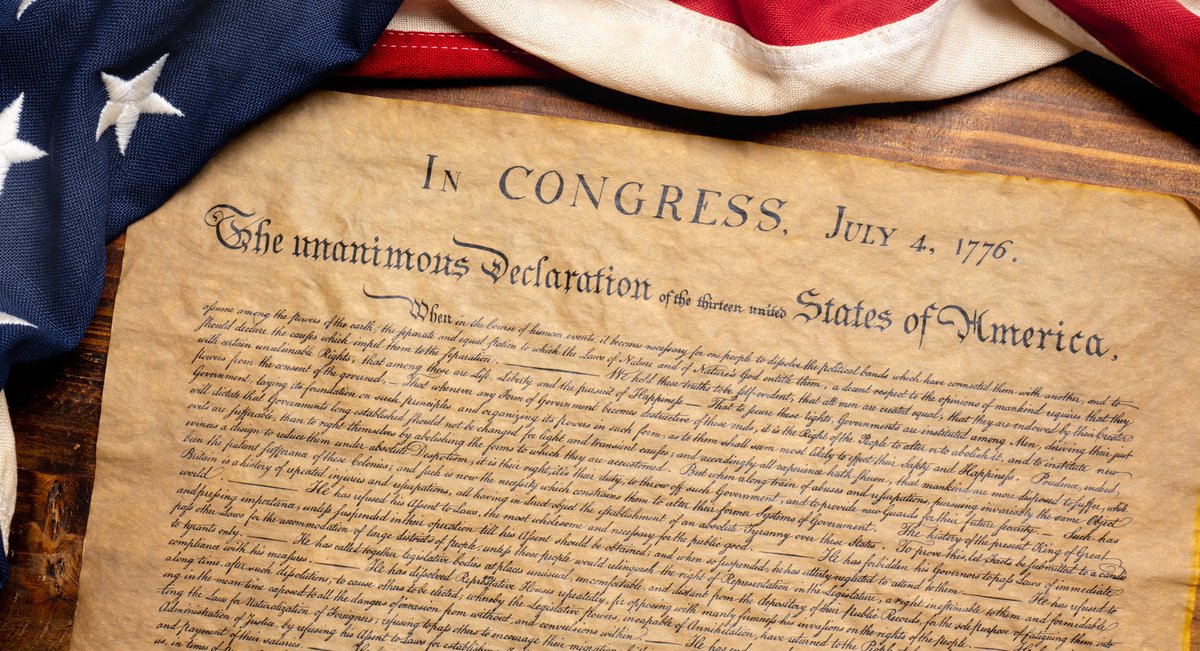 In CONGRESS, July 4, 1776.
The unanimous Declaration of the thirteen united States of America,
When in the Course of human events, it becomes necessary for one people to dissolve the political bands which have connected them with another, and to
assume among the powers of the earth, the separate and equal station to which the Laws of Nature and of Nature's God entitle them, a decent respect to the opinions of mankind requires that they
should declare the causes which impel them to the separation. — We hold these truths to be self-evident, that all men are created equal, that they are endowed by their Creator
with certain unalienable Rights, that among these are Life, Liberty and the pursuit of Happiness.— That to secure these rights, Governments are instituted among Men, deriving their just
powers from the consent of the governed,— That whenever any Form of Government becomes destructive of these ends, it is the Right of the People to alter or to abolish it, and to institute new
Government, laying its foundation on such principles and organizing its powers in such form, as to them shall seem most likely to effect their Safety and Happiness. Prudence, indeed,
will dictate that Governments long established should not be changed for light and transient causes; and accordingly all experience hath shewn, that mankind are more disposed to suffer, while
evils are sufferable, than to right themselves by abolishing the forms to which they are accustomed. But when a long train of abuses and usurpations, pursuing invariably the same Object
evinces a design to reduce them under absolute Despotism, it is their right, it is their duty, to throw off such Government, and to provide new Guards for their future security.— Such has
been the patient sufferance of these Colonies; and such is now the necessity which constrains them to alter their former Systems of Government. The history of the present King of Great
Britain is a history of repeated injuries and usurpations, all having in direct object the establishment of an absolute Tyranny over these States. To prove this, let Facts be submitted to a candid
world. — He has refused his Assent to Laws, the most wholesome and necessary for the public good. — He has forbidden his Governors to pass Laws of immediate
and pressing importance, unless suspended in their operation till his Assent should be obtained; and when so suspended, he has utterly neglected to attend to them. — He has refused to
pass other Laws for the accommodation of large districts of people, unless those people would relinquish the right of Representation in the Legislature, a right inestimable to them and formidable
to tyrants only. — He has called together legislative bodies at places unusual, uncomfortable, and distant from the depository of their public Records, for the sole purpose of fatiguing them into
compliance with his measures. — He has dissolved Representative Houses repeatedly, for opposing with manly firmness his invasions on the rights of the people. — He has
along time, after such dissolutions, to cause others to be elected; whereby the Legislative powers, incapable of Annihilation, have returned to the People
ing in the mean time exposed to all the dangers of invasion from without, and convulsions within. — He has
ting the Laws for Naturalization of Foreigners; refusing to pass others to encourage their migration
Administration of Justice, by refusing his Assent to Laws for
and payment of their salaries. —
us, in times of